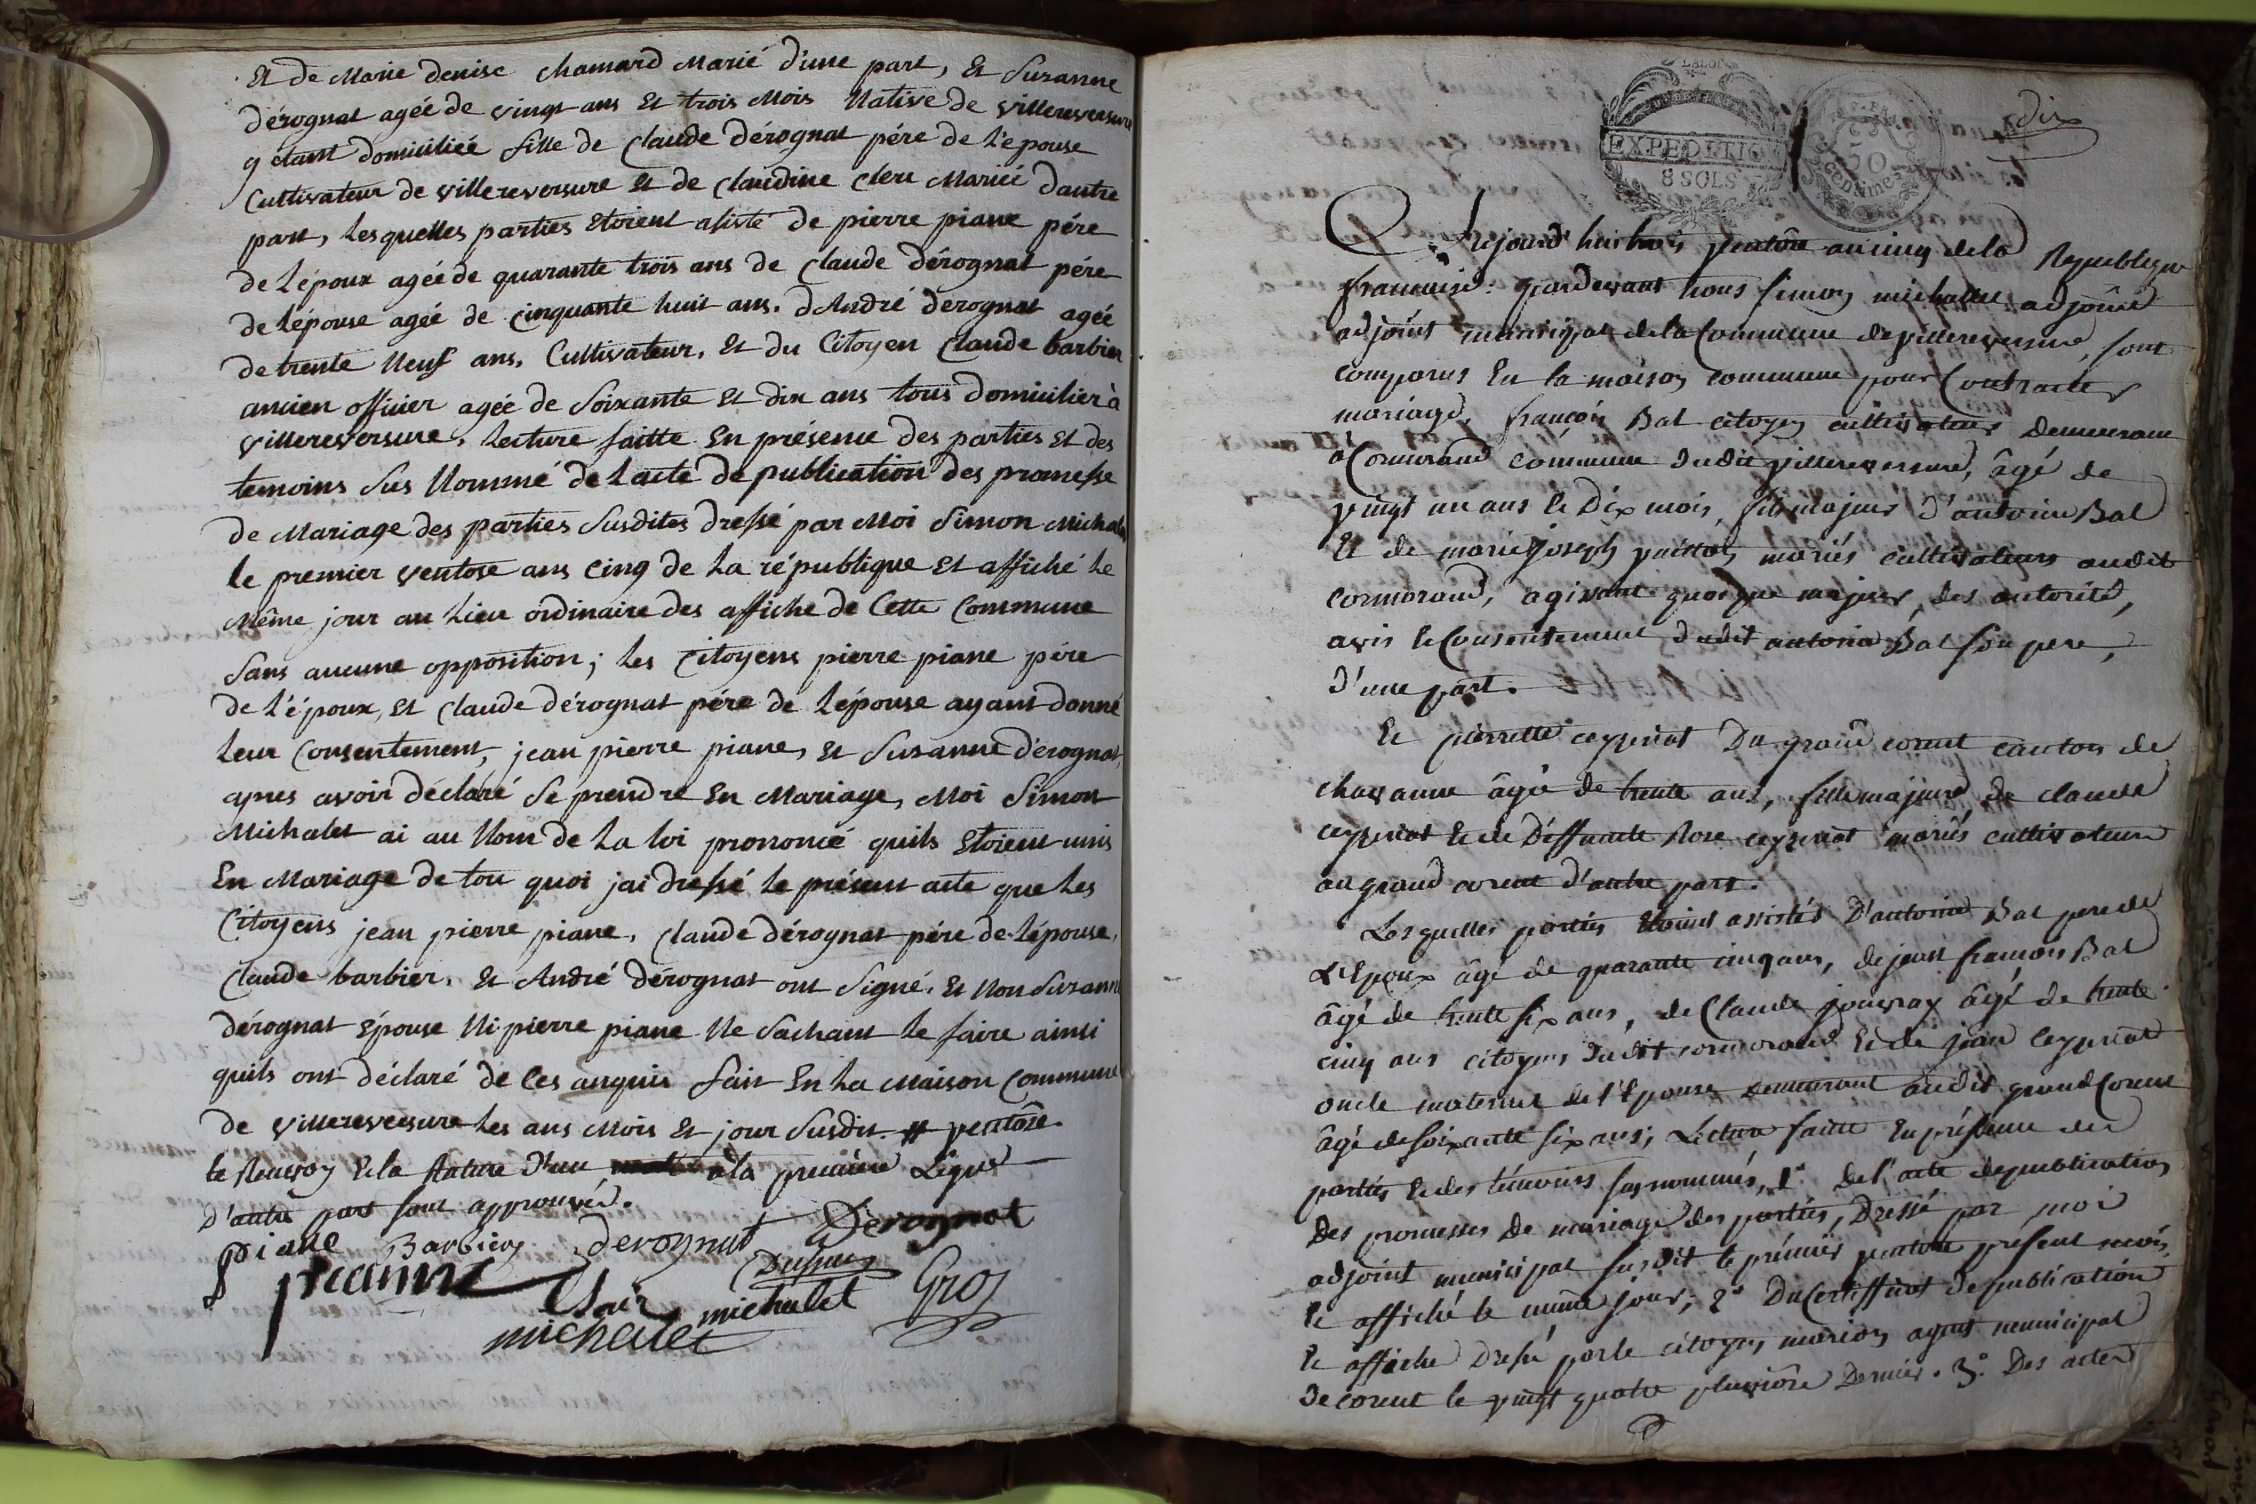 Et de Marie denise chamard Marié d'une part, Et Suzanne
dérognat agée de vingt ans Et trois Mois Native de villereversure
y etant domiciliée fille de Claude dérognat pére de L'epouse
Cultivateur de villereversure Et de claudine clerc Mariéé dautre
part, Lesquelles parties Etoient asisté de pierre piane pére
de L'époux agée de quarante trois ans de Claude dérognat pére
de Lépouse agéé de cinquante huit ans. d'André dérognat agéé
de trente Neuf ans, Cultivateur, Et du Citoyen Claude barbier
ancien officier agéé de Soixante Et dix ans tous domicilier à
villereversure. Lecture faitte En présence des parties Et des
temoins Sus Nommé de Lacte de publication des promesse
de Mariage des parties Susdites dressé par Moi Simon Michalet
le premier ventose ans cinq de La république Et affiché le
Même jour au Lieu ordinaire des affiche de Cette Commune
Sans aucune opposition; Les Citoyens pierre piane pére
de L'époux, Et Claude dérognat pére de Lépouse ayant donné
leur Consentement, jean pierre piane, Et Suzanne dérognat,
apres avoir déclaré Se prendre En Mariage, Moi Simon
Michalet ai au Nom de La loi prononcé quils Etoient unis
En Mariage de tou quoi jai dressé le présent acte que Les
Citoyens jean pierre piane, Claude dérognat pére de Lépouse,
Claude barbier, Et André dérognat ont Signé, Et Non Suzanne
dérognat Épouse Ni pierre piane Ne Sachant Le faire ainsi
quils ont déclaré de Ces anquis fait En La Maison Commune
de villereversure Les ans Mois Et jour Susdit. # ventôse
le Renvoy & la Rature d'un à la premiere Ligne
d'autre part sont approuvés.
piane Barbier derognat Derognat
michalet Gros
michalet
EXPEDITION
8 SOLS
50
centimes
dix
Aujourd'hui trois ventôse an cinq de la Republique
francaise: pardevant nous Simon michallet adjoint
adjoint municipal de la Commune de villereversure, sont
comparus En la maison commune pour Contracter
mariage, françois Bal citoyen cultivateur Demeurant
à Cormorand commune dudit villereversure, âgé de
vingt un ans & Dix mois, fils majeur d'antoine Bal
Et de marie joseph mariés cultivateurs audit
cormorand, agissant quoique majeur, des autorité,
avis & Consentement dudit antoine Bal son pere,
d'une part.
Et pierrette ceyzeriat Du grand corent canton de
chavanne âgée de trente ans, fille majeure de claude
ceyzeriat & de Déffunte Rose ceyzeriat mariés cultivateurs
au grand corent d'autre part.
Lesquelles parties Etoient assistés D'antoine Bal pere de
L'Epoux âgé de quarante cinq ans, de joseph francois Bal
âgé de trente six ans, de Claude jouvray âgé de trente
cinq ans citoyens dudit cormorand & de jean Ceyzeriat
oncle maternel de l'Epouse Demeurant audit grand Corent
âgé de soixante six ans; Lecture faitte En présence des
parties & des témoins susnommés, 1° De l'acte de publication
Des promesses De mariage des parties, Dressé par moi
adjoint municipal susdit le prémier ventôse présent mois,
& affiché le même jour; 2° Du Certifficat de publication
& affiche Dressé par le citoyen marion agent municipal
de corent le vingt quatre pluviôse Dernier. 3° Des actes